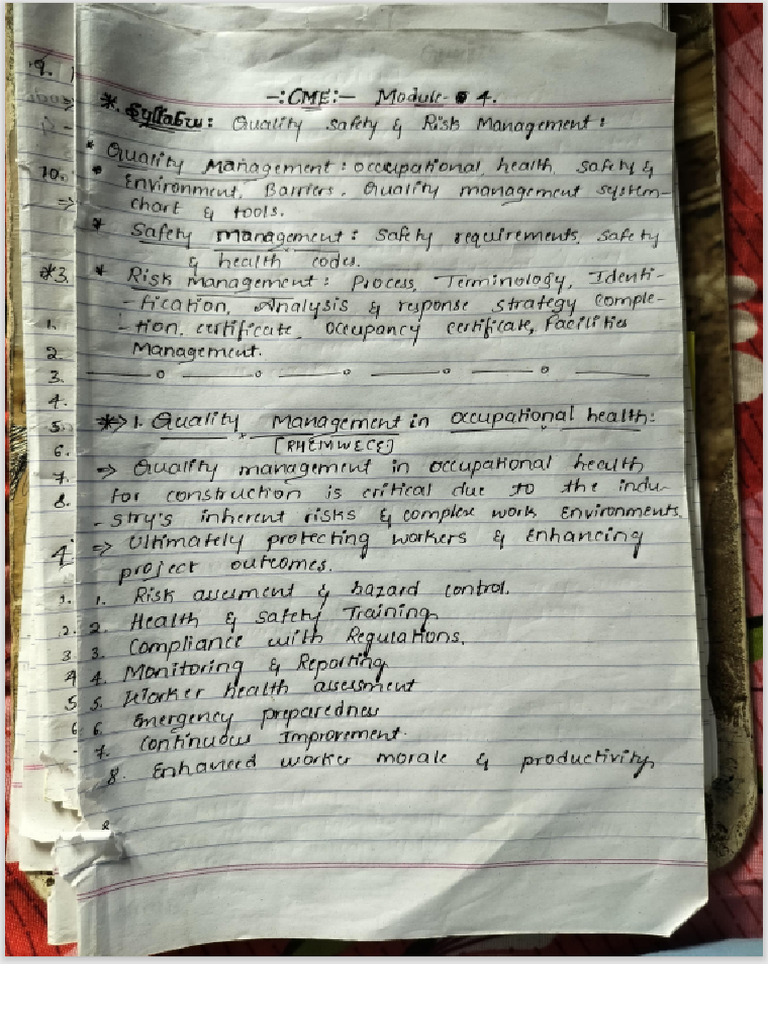 -: CME :- Module- 4.
*. Syllabus: Quality safety & Risk Management:
* Quality Management: occupational, health, safety &
Environment, Barriers. Quality management system-
chart & tools.
* Safety management: safety requirements, safety
& health codes.
* Risk management: Process, Terminology, Identi-
-fication, Analysis & response strategy comple-
-tion, certificate, occupancy certificate, Facilities
Management.
*→ 1. Quality Management in occupational health:
[RHEMWECE]
⇒ Quality management in occupational health
for construction is critical due to the indu-
-stry's inherent risks & complex work Environments.
⇒ Ultimately protecting workers & Enhancing
project outcomes.
1. Risk assesment & hazard control.
2. Health & Safety Training,
3. Compliance with Regulations.
4. Monitoring & Reporting
5. Worker health assessment
6. Emergency preparedness
7. Continuous Improvement.
8. Enhanced worker morale & productivity,
9.
10.
⇒
*3.
1.
2.
3.
4.
5.
6.
7.
8.
4
1.
2.
3
4
5
6